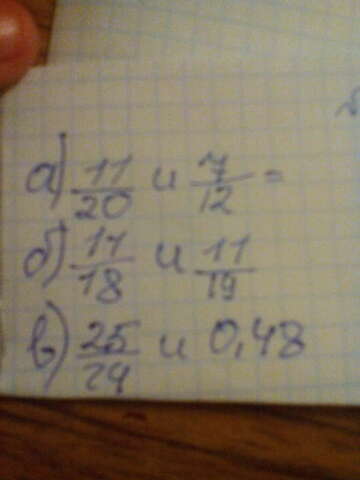 а) 11/20 и 7/12 =
б) 11/18 и 11/19
в) 25/24 и 0,48